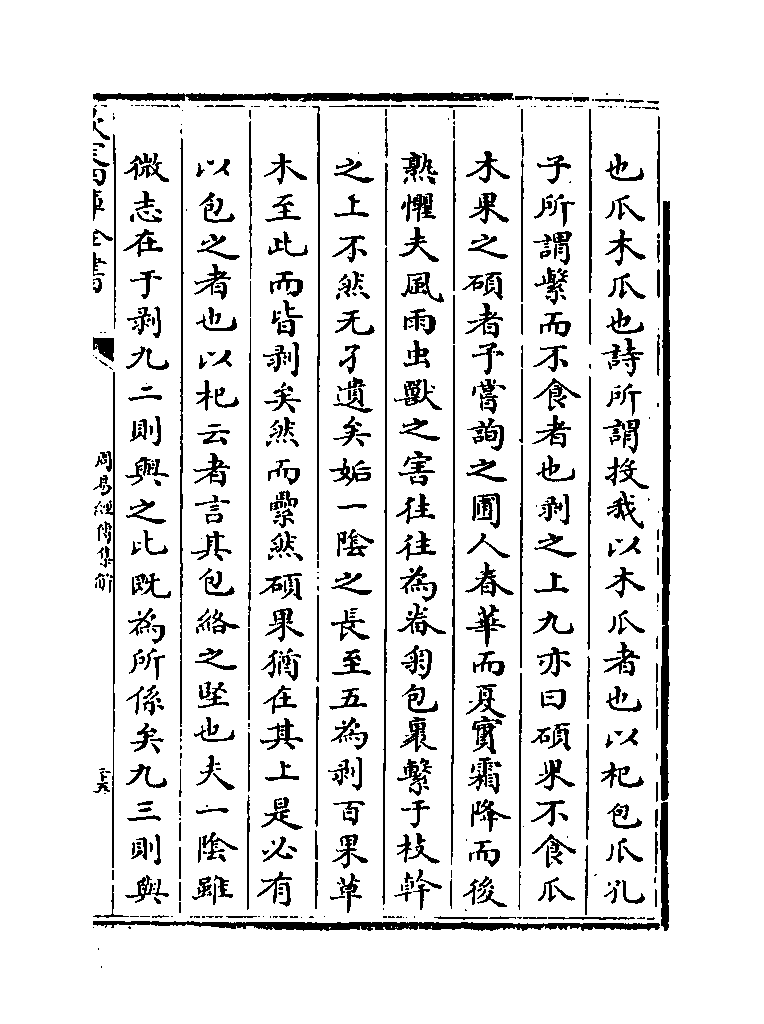 也瓜木瓜也詩所謂投我以木瓜者也以杞包瓜孔
子所謂繫而不食者也剥之上九亦曰碩果不食瓜
木果之碩者予嘗詢之圃人春華而夏實霜降而後
熟懼夫風雨虫獸之害往往為養芻包裹繫于枝幹
之上不然无孑遺矣姤一陰之長至五為剥百果草
木至此而皆剥矣然而纍然碩果猶在其上是必有
以包之者也以杞云者言其包絡之堅也夫一陰雖
微志在于剥九二則與之比既為所係矣九三則與
欽定四庫全書
周易經傳集解
二十六